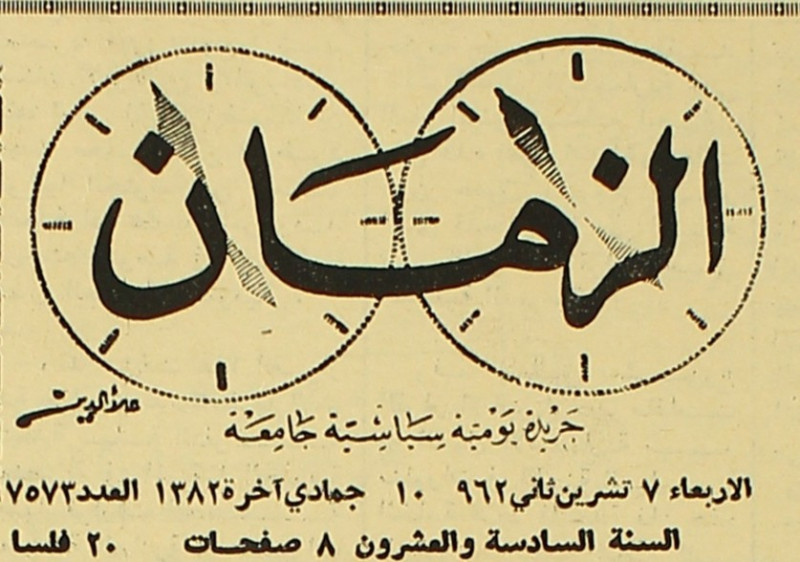 الزمان
علاء الدين
جريدة يومية سياسية جامعة
الاربعاء ٧ تشرين ثاني ٩٦٢ ١٠ جمادي آخرة ١٣٨٢ العدد ٧٥٧٣
السنة السادسة والعشرون ٨ صفحات ٢٠ فلسا